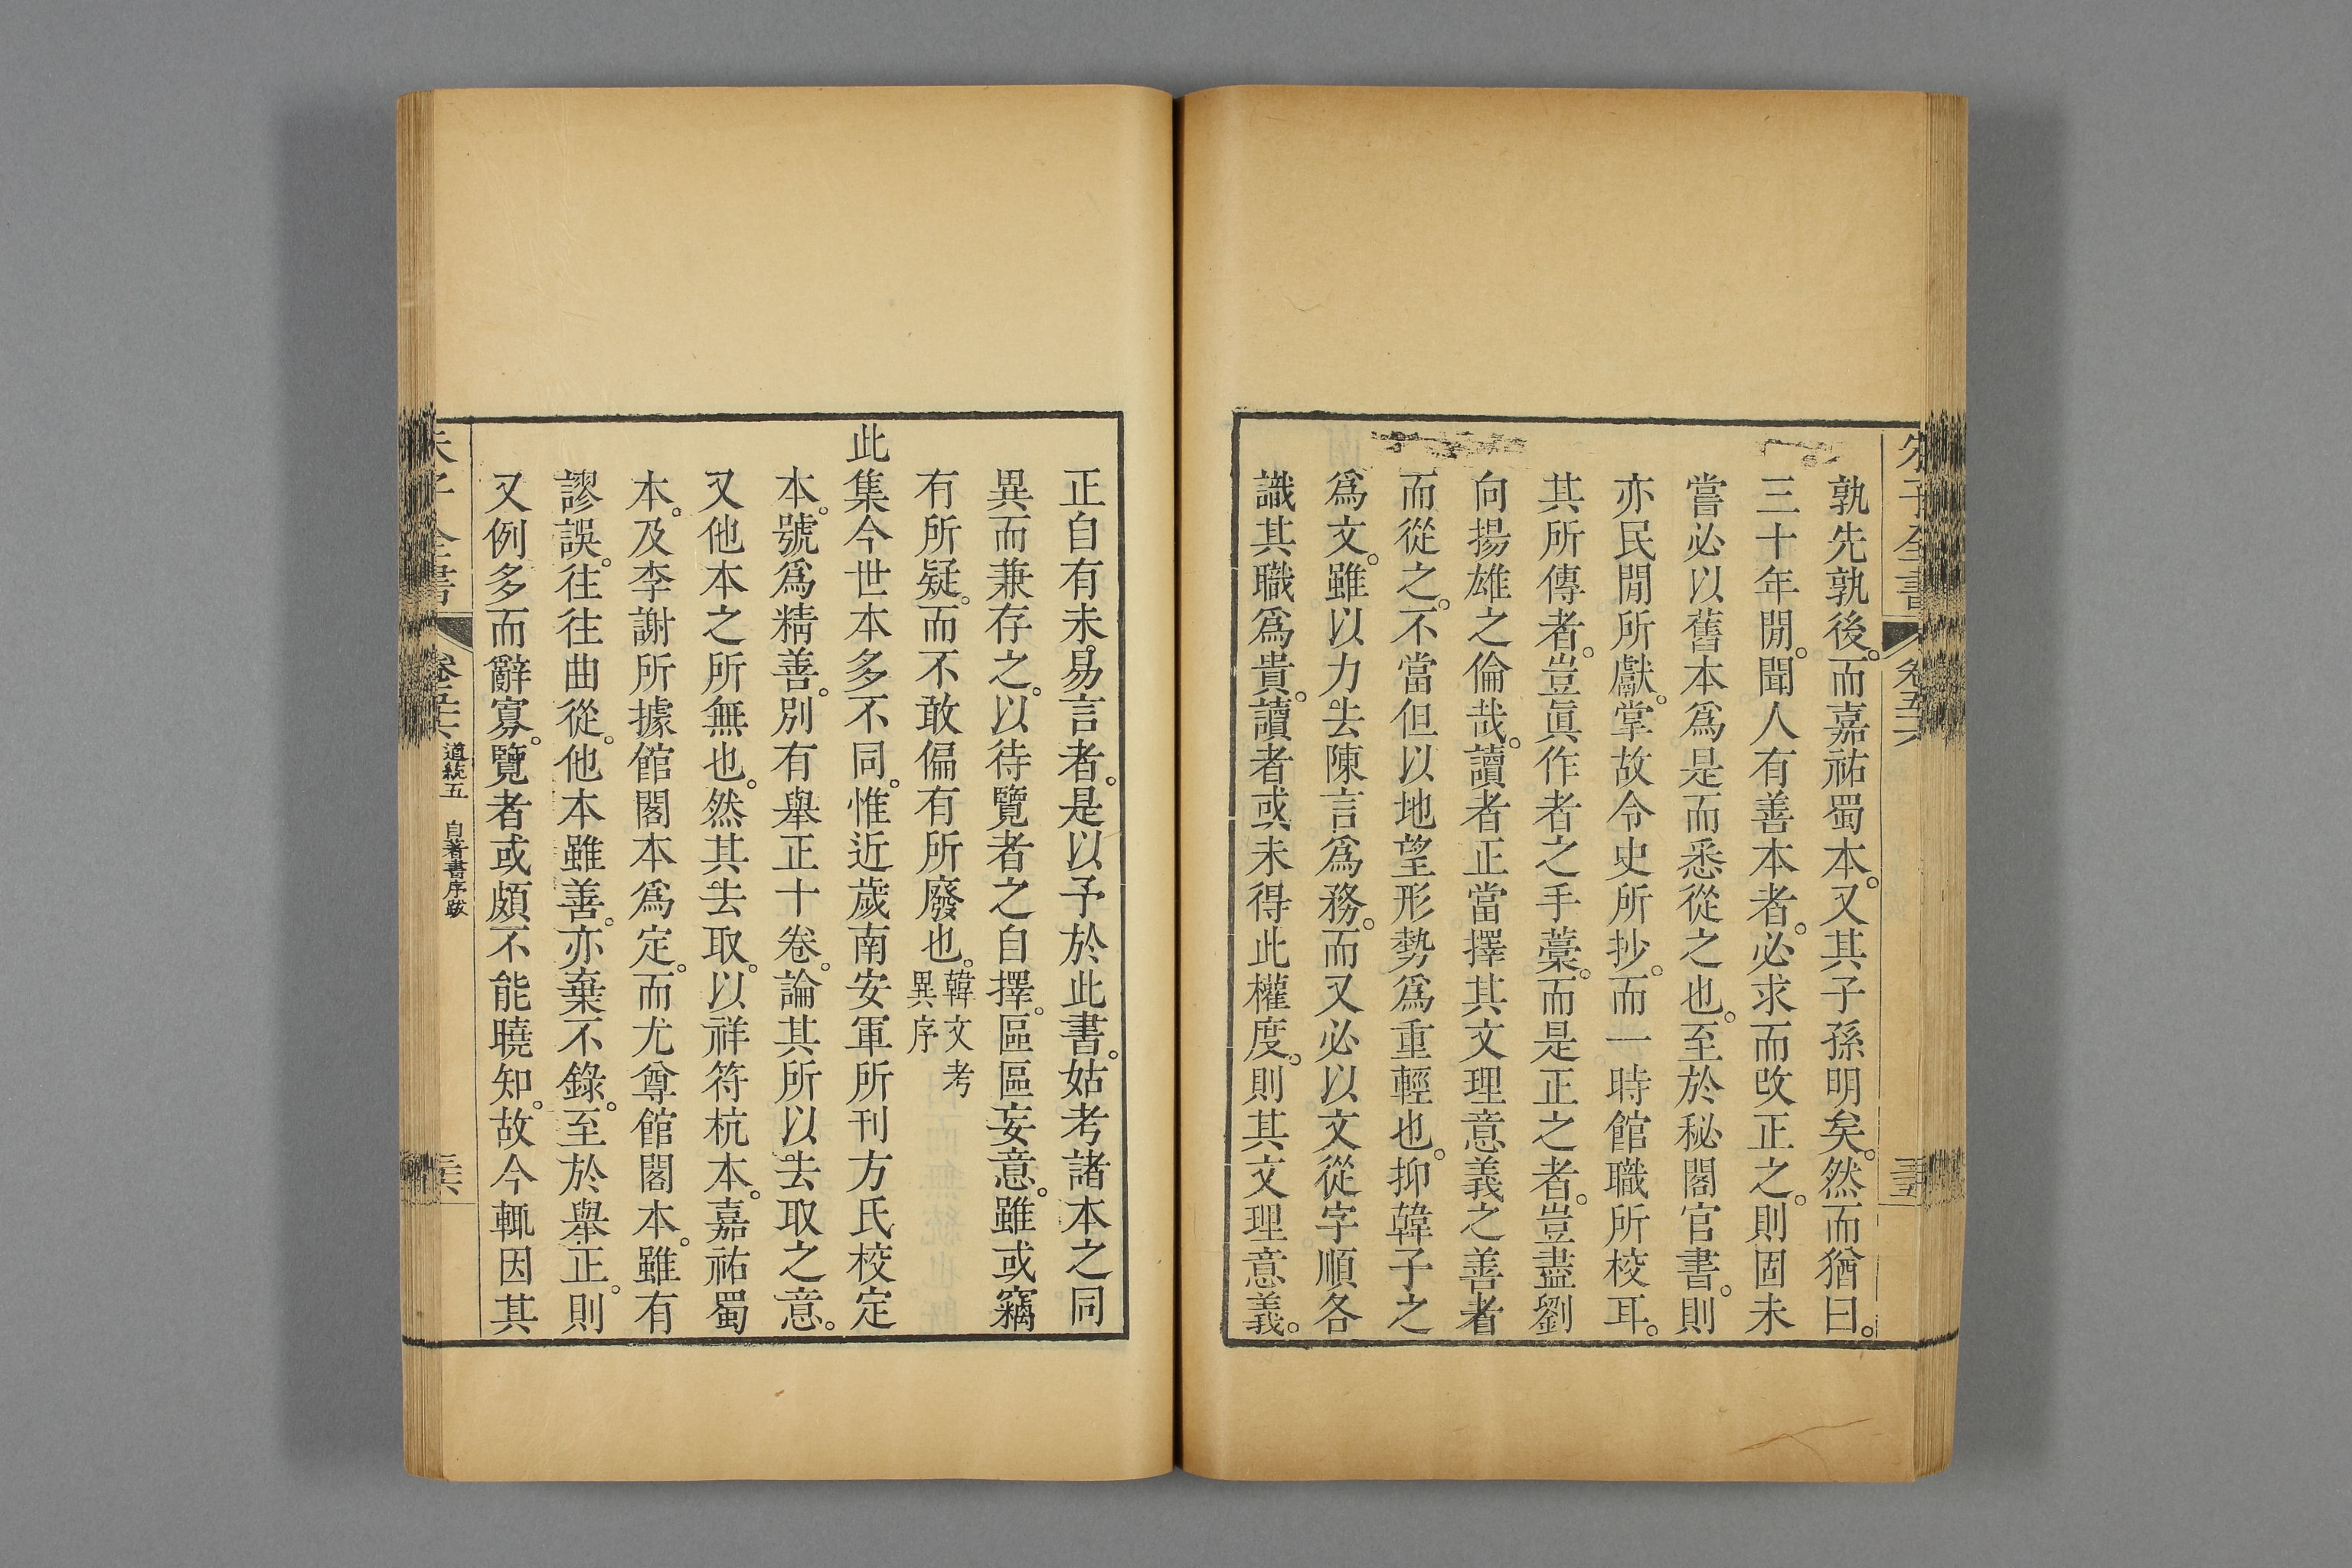 孰先孰後。而嘉祐蜀本。又其子孫明矣。然而猶曰。
三十年閒。聞人有善本者。必求而改正之。則固未
嘗必以舊本爲是而悉從之也。至於秘閣官書。則
亦民閒所獻。掌故令史所抄。而一時館職所校耳。
其所傳者。豈眞作者之手藁。而是正之者。豈盡劉
向揚雄之倫哉。讀者正當擇其文理意義之善者
而從之。不當但以地望形勢爲重輕也。抑韓子之
爲文。雖以力去陳言爲務。而又必以文從字順各
識其職爲貴。讀者或未得此權度。則其文理意義。
正自有未易言者。是以予於此書。姑考諸本之同
異而兼存之。以待覽者之自擇。區區妄意。雖或竊
有所疑。而不敢偏有所廢也。韓文考異序
此集今世本多不同。惟近歲南安軍所刊方氏校定
本。號爲精善。別有舉正十卷。論其所以去取之意。
又他本之所無也。然其去取。以祥符杭本。嘉祐蜀
本。及李謝所據館閣本爲定。而尤尊館閣本。雖有
謬誤。往往曲從。他本雖善。亦棄不錄。至於舉正。則
又例多而辭寡。覽者或頗不能曉知。故今輒因其
道統五 自著書序跋